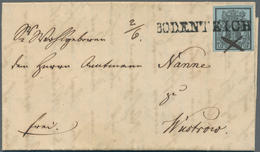 2/6
BODENTEICH
Sr Wohlgeboren
den Herrn Amtmann Nanne
zu
frei.
Wustrow